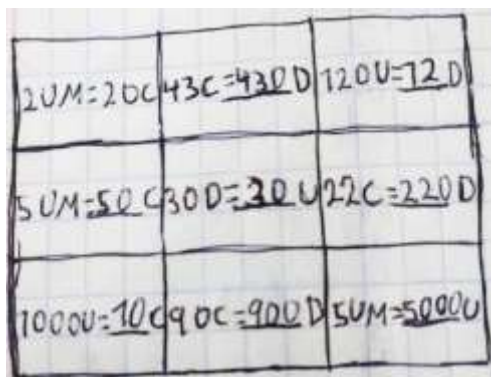 2UM=20C 43C=430D 120U=12D
5UM=50C 30D=30U 22C=220D
1000U=10C 90C=900D 5UM=5000U